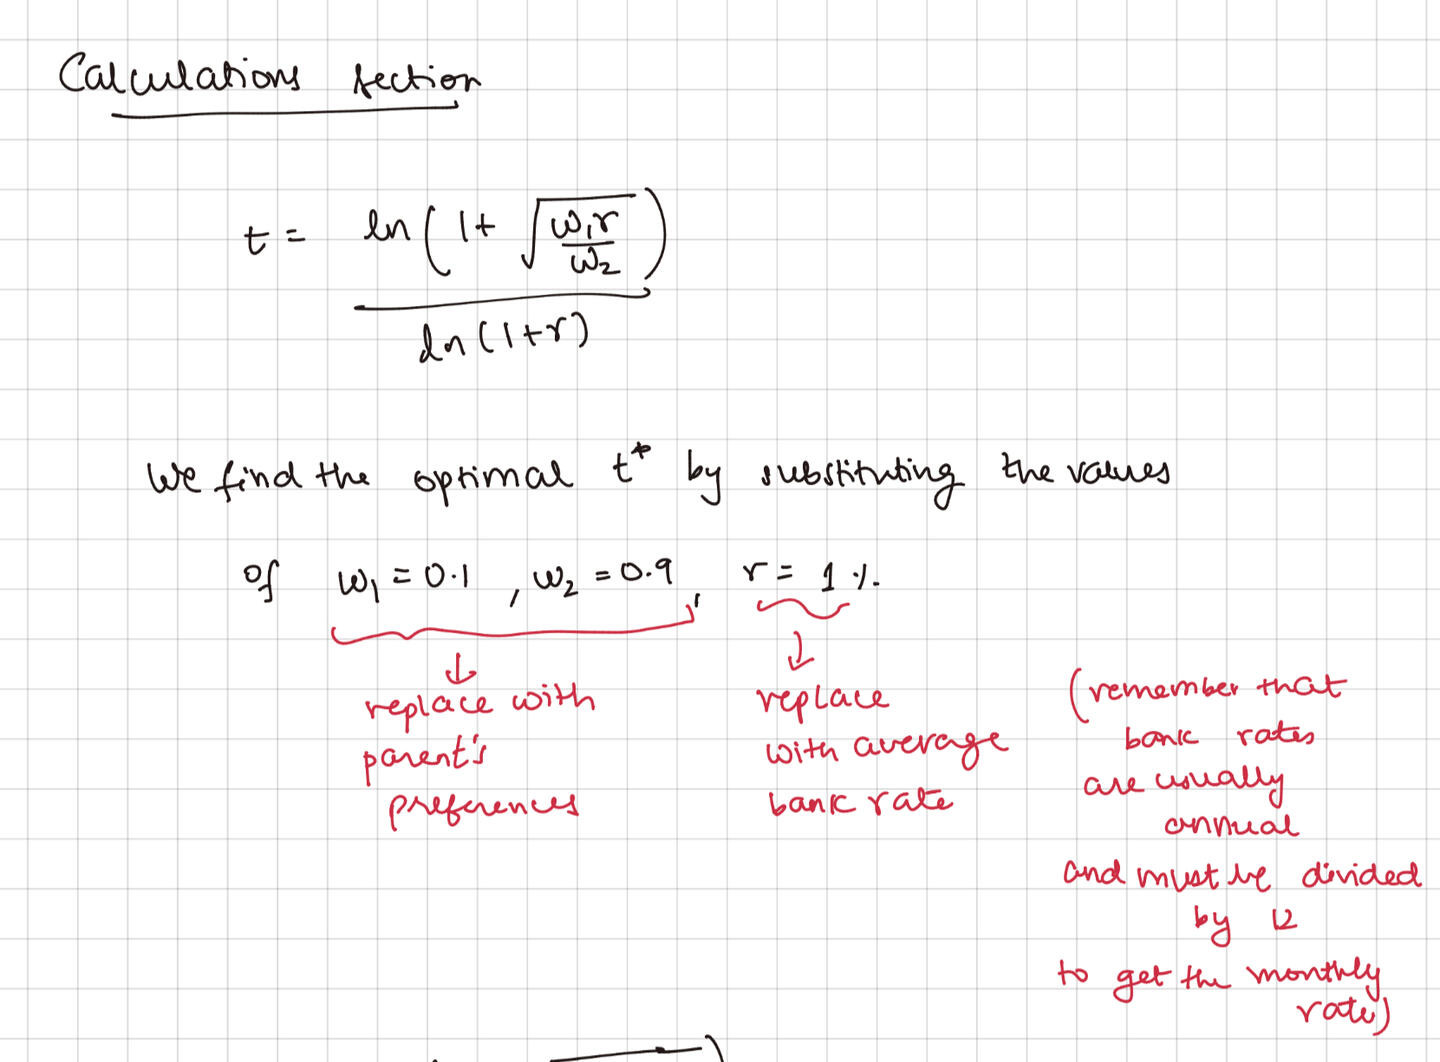 Calculations section
t = ln(1+ √(ω₁r/ω₂)) / ln(1+r)
We find the optimal t* by substituting the values
of ω₁ = 0.1 , ω₂ = 0.9, r = 1 %.
↓ replace with
parent's
preferences
↓ replace
with average
bank rate
(remember that
bank rates
are usually
annual
and must be divided
by 12
to get the monthly
rate)